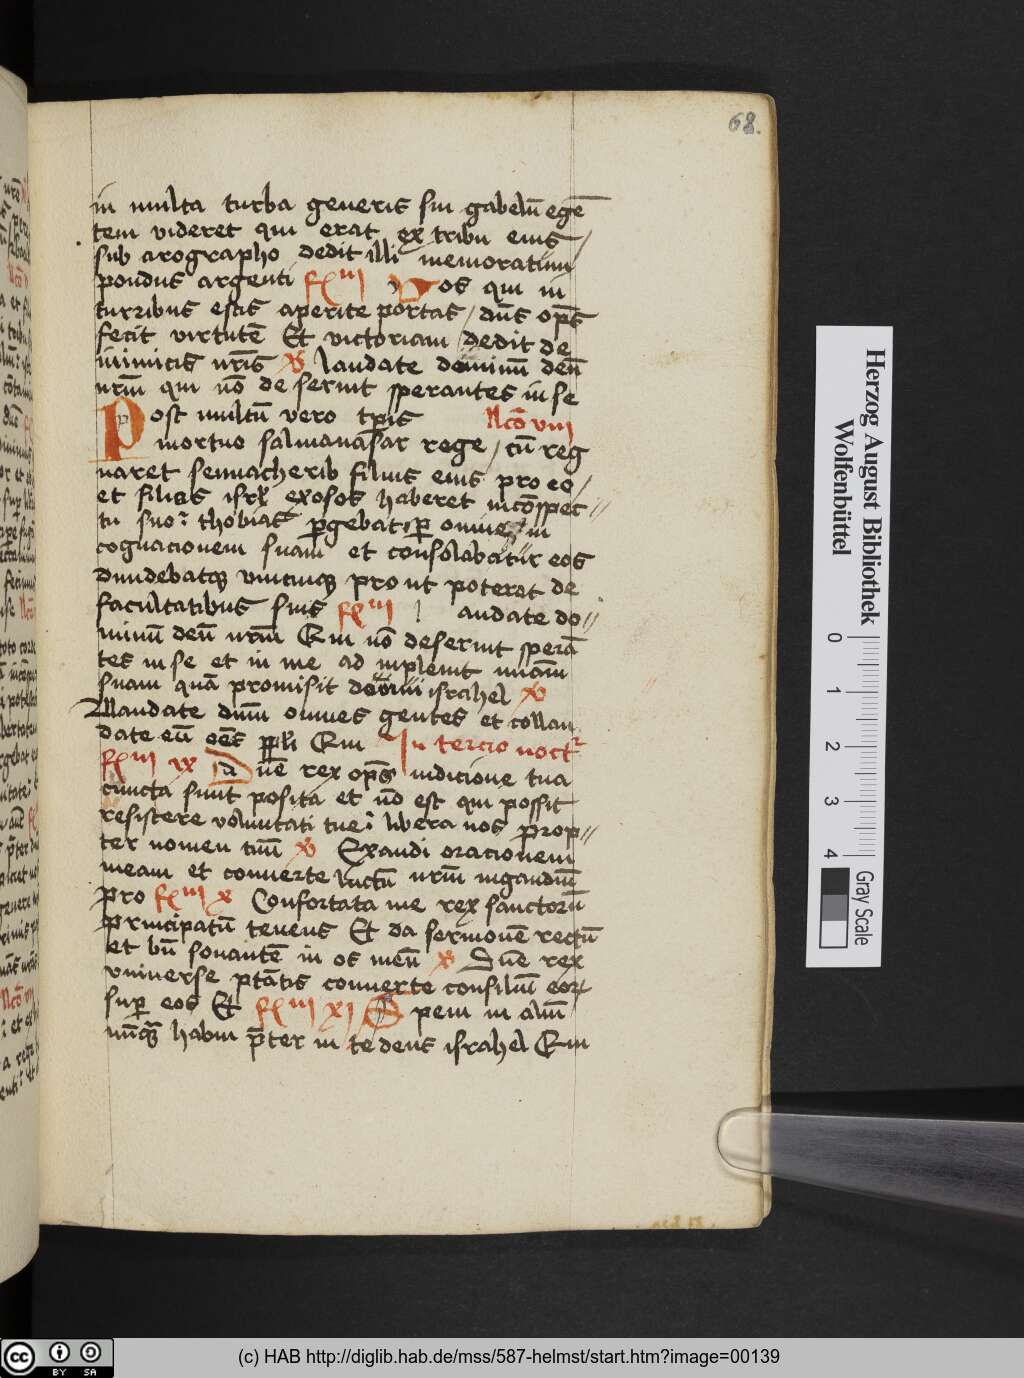 68.
in multa turba generis sui gabelū egē
tem videret qui erat ex tribu eius /
sub arographo dedit illi memoratum
pondus argenti Rͫ Vos qui in
turribus estis aperite portas / dn̄s opīs
fecit virtutē Et victoriam dedit de
inimicis nr̄is v̄ laudate dominum deū
nr̄m qui nō deseruit sperantes in se
Post multū vero tp̄is lc̄o viii
mortuo salmanasar rege / cū reg
naret sennacherib filius eius pro eo /
et filios isrl̄ exosos haberet in cōspec //
tu suo : thobias p̄gebat p̄ omnem
cognacionem suam et consolabatur eos
diuidebatq3 vnicuiq3 prout poteret de
facultatibus suis Rͫ l audate do //
minū deū nr̄m Qui nō deseruit sperā
tes in se et in me ad inpleuit mīam
suam quā promisit domui israhel v̄
Laudate dn̄m omnes gentes et collau
date eū oēs pp̄li Qui In tercio noctr̄
Rͫ ix Dn̄e rex opn̄s in dicione tua
cuncta sunt posita et nō est qui possit
resistere voluntati tue : libera nos prop //
ter nomen tuū v̄ Exaudi oracionem
meam et conuerte luctū nr̄m in gaudiū
pro Rͫ x Confortata me rex sanctorū
principatū tenens Et da sermonē rectū
et bn̄ sonantē in os meū v̄ Dn̄e rex
vniuerse ptātis conuerte consiliū eoꝝ
sup̄ eos Et Rͫ xi Spem in aliū
nūq̄3 habui p̄ter in te deus israhel Qui
Herzog August Bibliothek
Wolfenbüttel
0 1 2 3 4
Gray Scale
cc BY SA
(c) HAB http://diglib.hab.de/mss/587-helmst/start.htm?image=00139